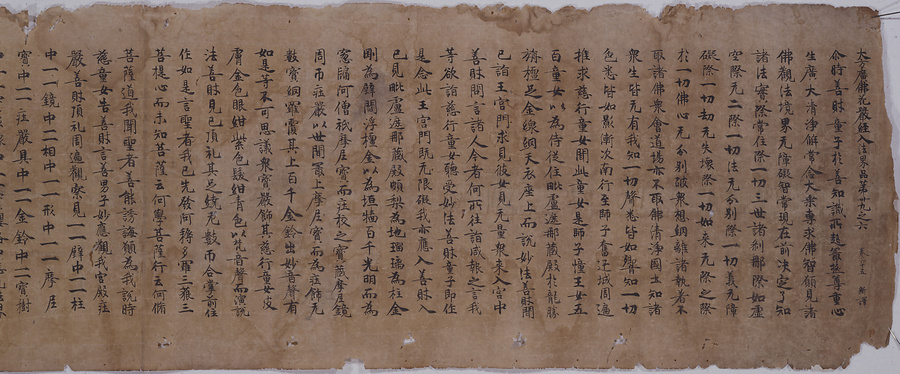 大方廣佛花嚴經入法界品第卅九之六 新譯
尒時善財童子於善知識所起最極尊重心
生廣大清淨解常念大乘專求佛智願見諸
佛觀法境界无障礙智常現在前決定了知
諸法實際常住際一切三世諸剎那際如虛
空際无二際一切法无分別際一切義无障
礙際一切劫无失壞際一切如來无際之際
於一切佛心无分別破衆想網離諸執著不
取諸佛衆會道場亦不取佛清淨國土知諸
衆生皆无有我知一切聲悉皆如響知一切
色悉皆如影漸次南行至師子奮迅城周遍
推求慈行童女聞此童女是師子幢王女五
百童女以為侍從住毗盧遮那藏殿於龍勝
旃檀足金線網天衣座上而說妙法善財聞
已詣王宮門求見彼女見无量衆來入宮中
善財問言諸人今者何所往詣咸報之言我
等欲詣慈行童女聽受妙法善財童子即作
是念此王宮門既无限礙我亦應入善財入
已見毗盧遮那藏殿頗梨為地瑠璃為柱金
剛為壁閻浮檀金以為垣牆百千光明而為
窓牖阿僧祇摩尼寶而莊校之寶藏摩尼鏡
周帀莊嚴以世間最上摩尼寶而為莊飾无
數寶網羅覆其上百千金鈴出妙音聲有
如是等不可思議衆寶嚴飾其慈行童女皮
膚金色眼紺紫色髮紺青色以梵音聲而演說
法善財見已頂礼其足繞无數帀合掌前住
作如是言聖者我已先發阿耨多羅三藐三
菩提心而未知菩薩云何學菩薩行云何脩
菩薩道我聞聖者善能誘誨願為我說時
慈童女告善財言善男子汝應觀我宮殿莊
嚴善財頂礼周遍觀察見一一壁中一一柱
中一一鏡中一一相中一一形中一一摩尼
寶中一一莊嚴具中一一金鈴中一一寶樹